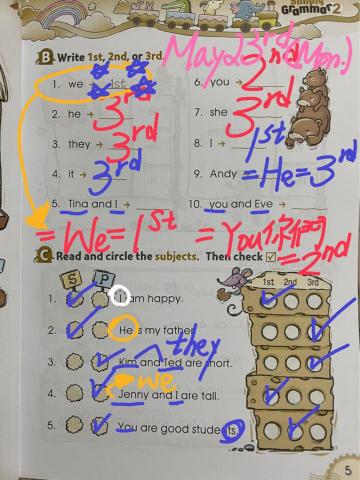 Simply
Grammar 2
May 23rd (Mon.)
B Write 1st, 2nd, or 3rd.
1. we → 1st
2. he → 3rd
3. they → 3rd
4. it → 3rd
5. Tina and I →
= We = 1st
6. you → 2nd
7. she → 3rd
8. I → 1st
9. Andy = He = 3rd
10. you and Eve →
= You 你們
= 2nd
C Read and circle the subjects. Then check ☑
S P
1st 2nd 3rd
1. I am happy.
2. He is my father.
they
3. Kim and Ted are short.
we
4. Jenny and I are tall.
5. You are good students.
5